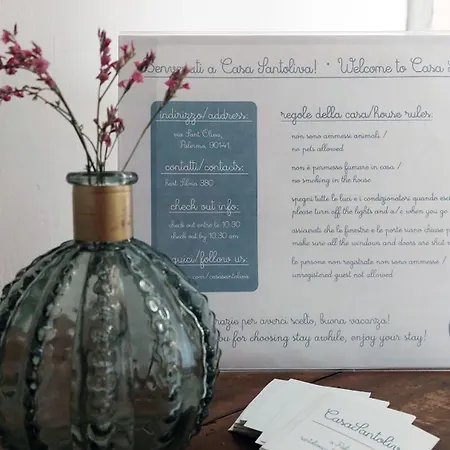 Benvenuti a Casa Santoliva! * Welcome to Casa
indirizzo/address:
Palermo, 90141
contatti/contacts:
check out info:
check out entro le 10:30
check out by 10:30 am
guici/follow us:
.com/casasantoliva
regole della casa/house rules:
non sono ammessi animali /
no pets allowed
non è permesso fumare in casa /
no smoking in the house
spegni tutte le luci e i condizionatori quando esci
please turn off the lights and a/c when you go
assicurati che le finestre e le porte siano chiuse
make sure all the windows and doors are shut
le persone non registrate non sono ammesse /
unregistered guest not allowed
grazie per averci scelto, buona vacanza!
you for choosing stay awhile, enjoy your stay!
CasaSantoliva